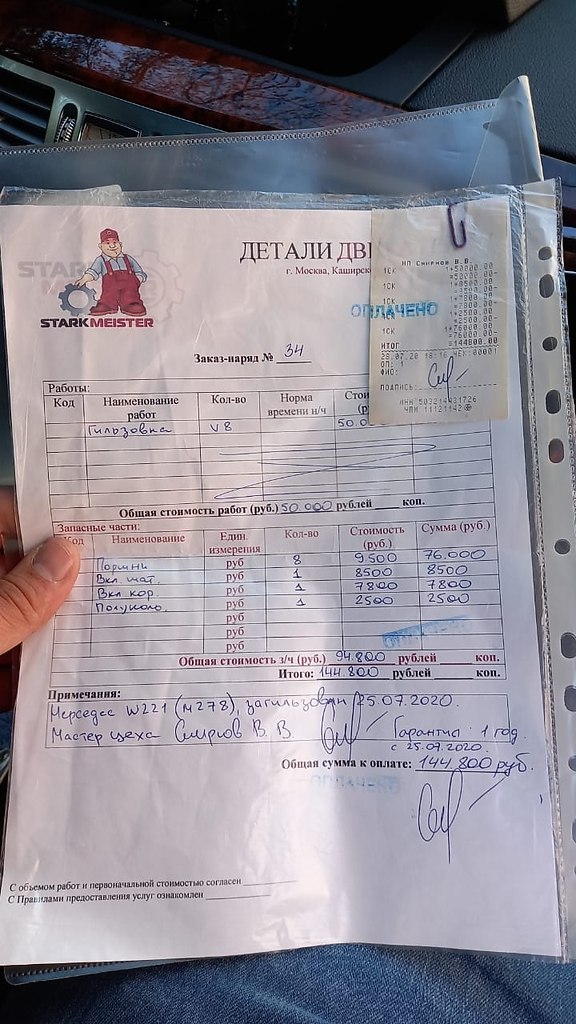 STARKMEISTER
ДЕТАЛИ
г. Москва, Каширск
Заказ-наряд № 34
ИП Смирнов В.В.
1СК 1*50000.00
=50000.00
1СК
1СК
1СК
1СК 1*76000.00
=76000.00
ИТОГ =144800.00
28.07.20 18:16 ЧЕК:00001
ОП: 1
ФИО:
ПОДПИСЬ:
ИНН 503214431726
ЧПИ 11121142
ОПЛАЧЕНО
Работы:
Код Наименование работ Кол-во Норма времени н/ч
Гильзовка V8 50.0
Общая стоимость работ (руб.) 50.000 рублей коп.
Запасные части:
Код Наименование Един. измерения Кол-во Стоимость (руб.) Сумма (руб.)
Поршни руб 8 9.500 76.000
Вкл. шат. руб 1 8500 8500
Вкл кор. руб 1 7800 7800
Полуколь. руб 1 2500 2500
руб
руб
руб
Общая стоимость з/ч (руб.) 94.800 рублей коп.
Итого: 144.800 рублей коп.
Примечания:
Мерседес W221 (м278), загильзован 25.07.2020.
Мастер цеха Смирнов В. В Гарантия 1 год.
с 25.07.2020.
Общая сумма к оплате: 144.800 руб.
ОПЛАЧЕНО
С объемом работ и первоначальной стоимостью согласен
С Правилами предоставления услуг ознакомлен